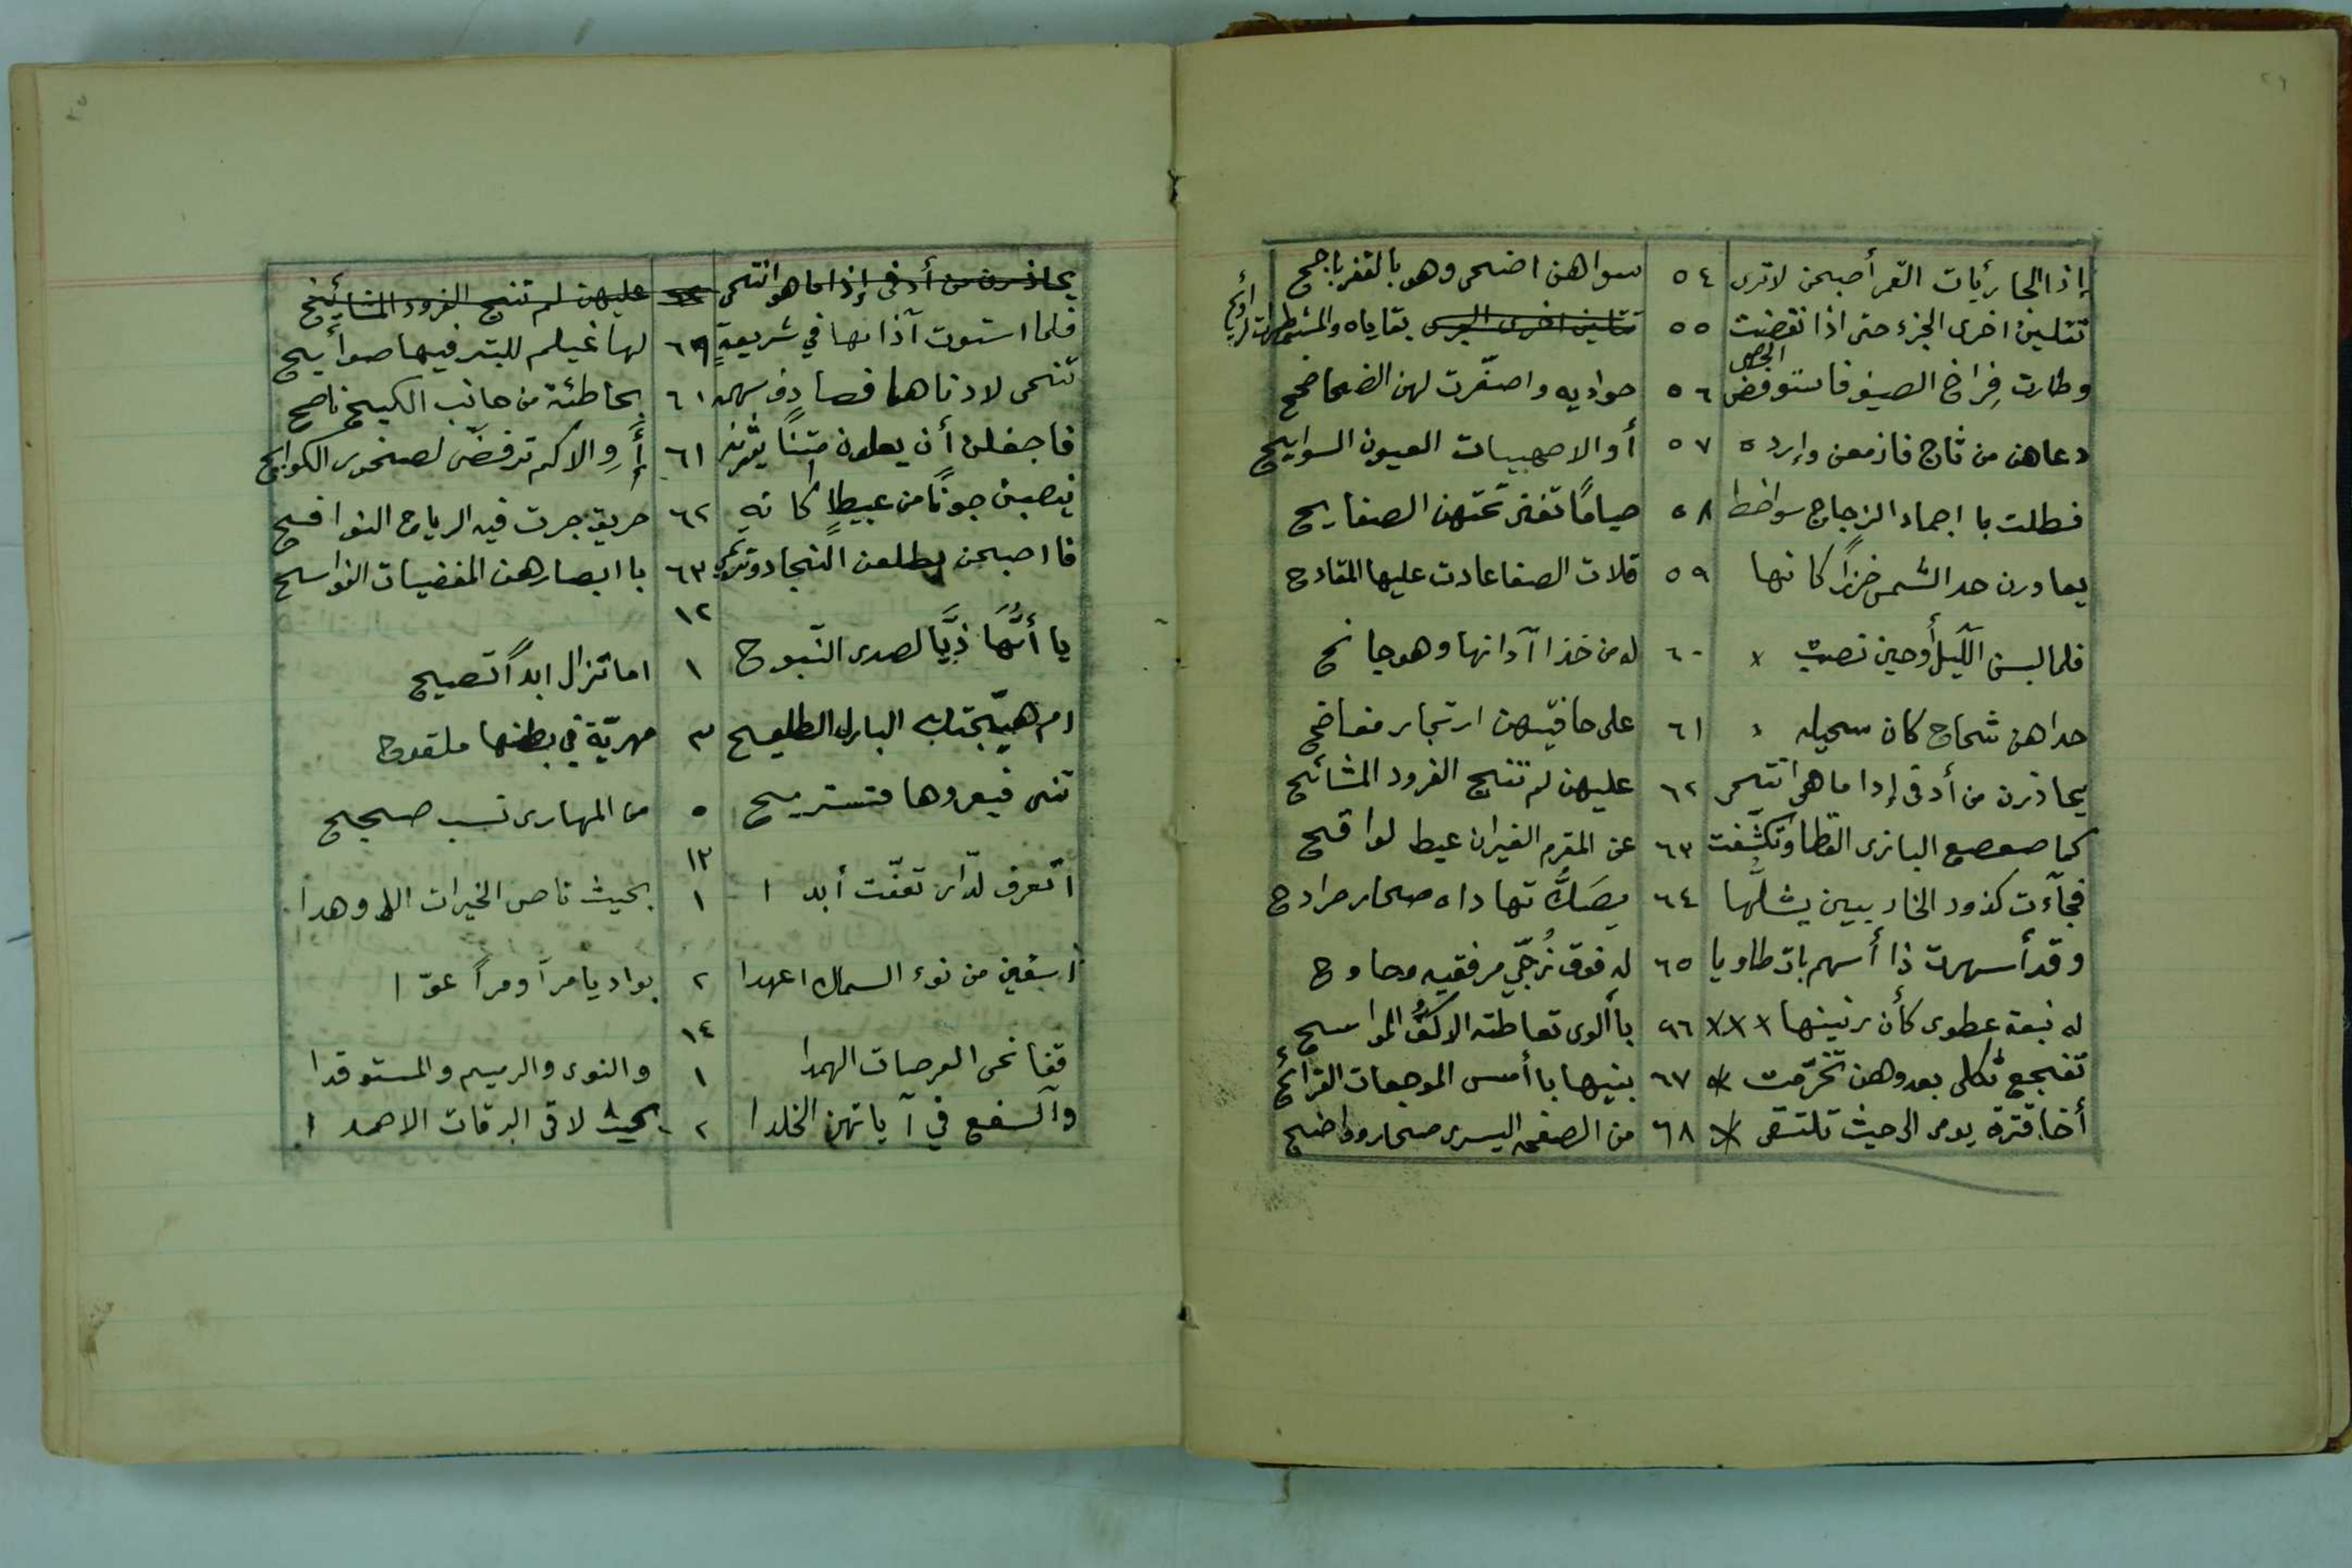 إذا الجائريات القمر أصبحن لا ترى ٥٤ سواهن اضحى وهو بالقفر باجح
تتلين اخرى الجزء حتى اذا نقضت ٥٥ بقاياه والمستمطرات
وطارت فِراخ الصيف فاستوفض ٥٦ حواديه واصفّرت لهن الضحاضح
دعاهن من ثاج فازمعن وارده ٥٧ أو الاصهبيات العيون السوايح
فظلت با اجماد الزجاج سواخطا ٥٨ صيامًا تغنى تحتهن الصفايح
يعاورن حد الشمس خزرًا كانها ٥٩ قلات الصفا عادت عليها المقادح
فلما لبسن الليل أوحين نصبت ٦٠ له من خذا آذانها وهو جانح
حداهن شحاج كان سحيله ٦١ على حافتيهن ارتجاز مفاضح
يحاذرن من أدفى إذا ما هو انتحى ٦٢ عليهن لم تنج الفرود المشائح
كما صعصع البازى القطا وتكشّفت ٦٣ عن المقرم الغيران عيط لواقح
فجآءت كذود الخاربين يشلّها ٦٤ مِصَكٌّ تهاداه صحار صرادح
وقد أسهرت ذا أسهم بات طاويا ٦٥ له فوق زُجّي مرفقيه وحاوح
له نبعة عطوى كأن رنينها ٦٦ باألوى تعاطته الاكفُّ المواسح
تفجع ثكلى بعد وهن تخرّمت ٦٧ بنيها باأمس الموجعات القرائح
أخا قترة يومى الى حيث تلتقى ٦٨ من الصفحه اليسرى صحار وواضح
يحاذرن من أدفى إذا ما هو انتحى عليهن لم تنج الفرود المشائح
فلما استوت آذانها في شريعةٍ ٦٩ لها غيلم للبتر فيها صوأيح
تنحى لادناها فصادف سهمه ٦١ بحاطئة من جانب الكيح ناصح
فاجفلن أن يعلون متنًا يثرنه ٦١ أَوِ الاكم ترفضّ لصخور الكوابح
ينصبن جونًا من عبيطٍ كانه ٦٢ حريق جرت فيه الرياح النوافح
فا اصبحن يطلعن النجاد وترتمى ٦٣ با ابصارهن المفضيات الفواسح
١٢
يا أيُّهَا ذيَّا لصدى النّبوح ١ اما تزال ابدًا تصيح
ام هيّجتك البازل الطليح ٣ مهريّة في بطنها ملقوح
تنى فيعروها فتستريح ٥ من المهارى نسب صحيح
١٣
اتعرف لدّار تعفّت أبدا ١ بحيث ناصى الخبرات الاوهدا
اسقين من نوء السماك اعهدا ٢ بواديا مرآ ومرًا عوّدا
١٤
قفا نحى العرصات الهمدا ١ والنوى والرميم والمستوقدا
والسفع في آياتهن الخلدا ٢ بحيث لاقى البرقات الاصمدا